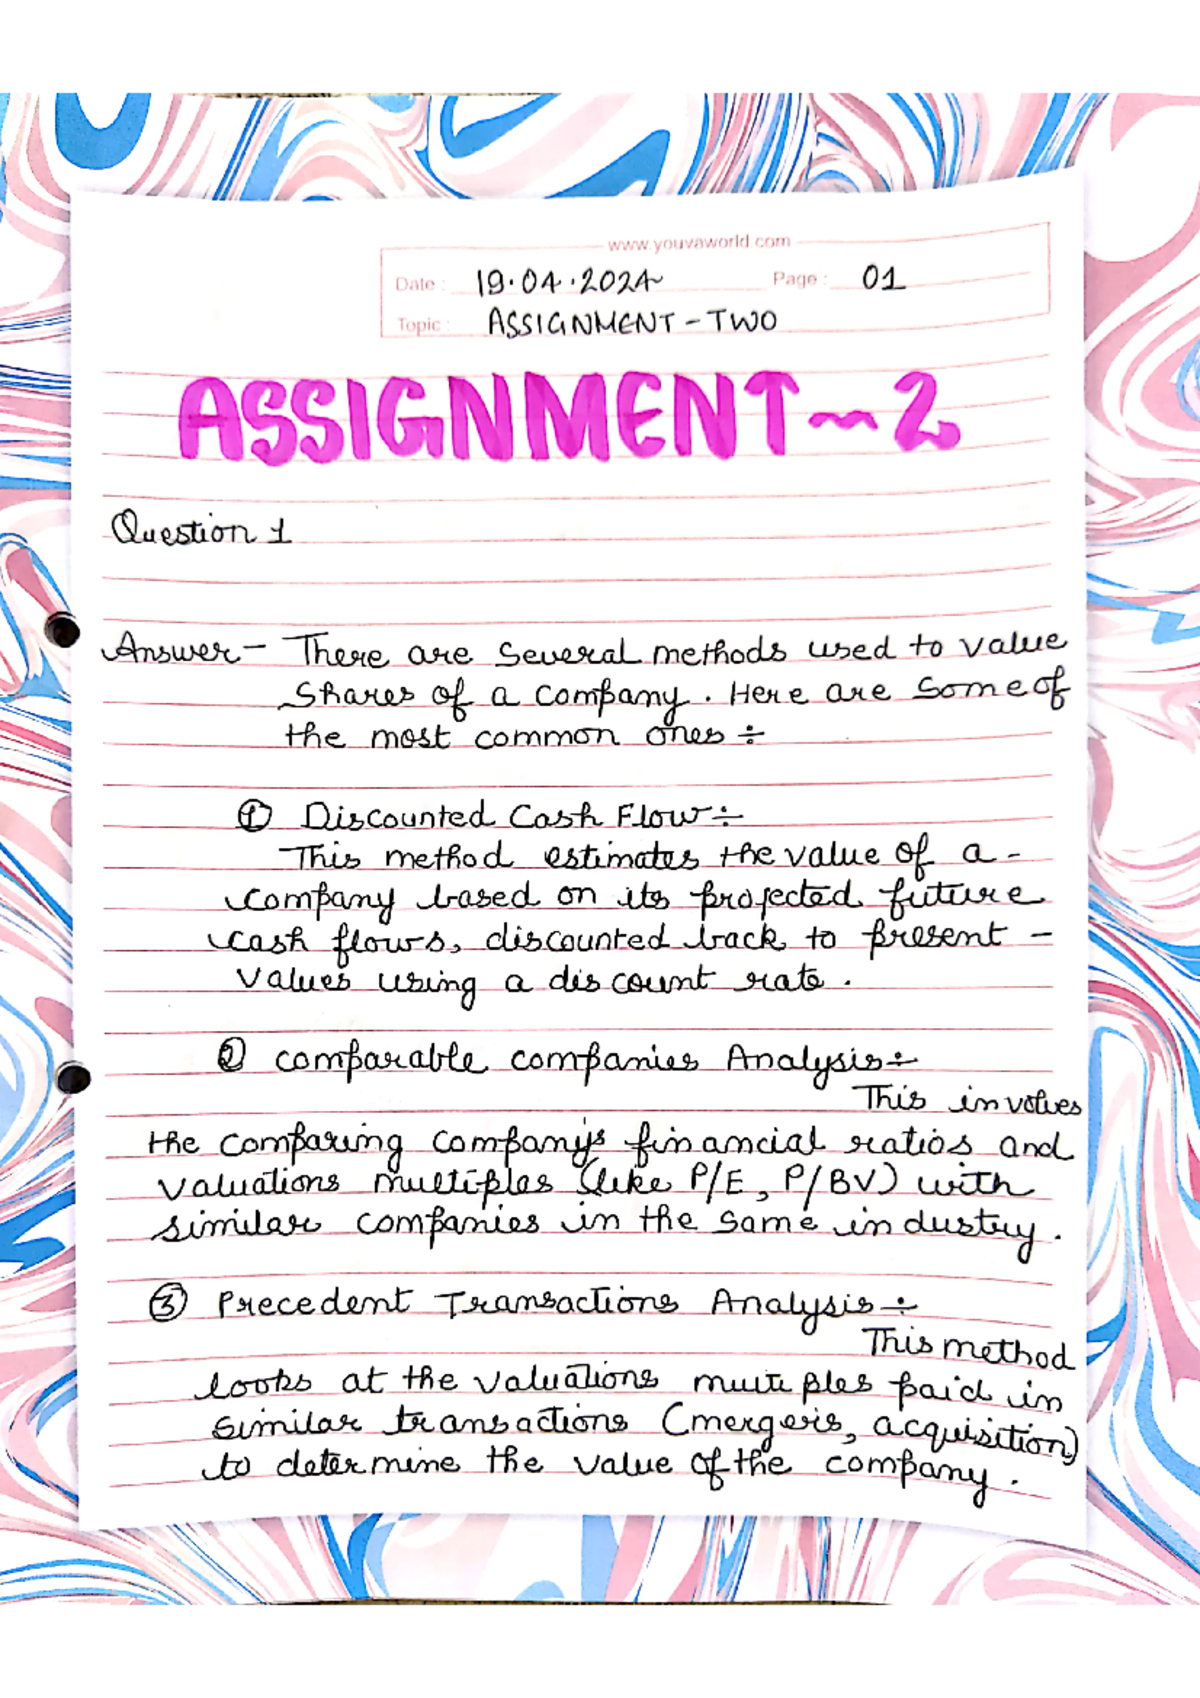 www.youvaworld.com
Date : 19.04.2024 Page : 01
Topic : ASSIGNMENT - TWO
ASSIGNMENT~2
Question 1
Answer - There are several methods used to value
shares of a company. Here are some of
the most common ones ÷
① Discounted Cash Flow ÷
This method estimates the value of a -
company based on its projected future
cash flows, discounted back to present -
values using a discount rate.
② comparable companies Analysis ÷
This involves
the comparing company's financial ratios and
valuations multiples (like P/E, P/BV) with
similar companies in the same industry.
③ Precedent Transactions Analysis ÷
This method
looks at the valuations multiples paid in
similar transactions (mergers, acquisition)
to determine the value of the company.